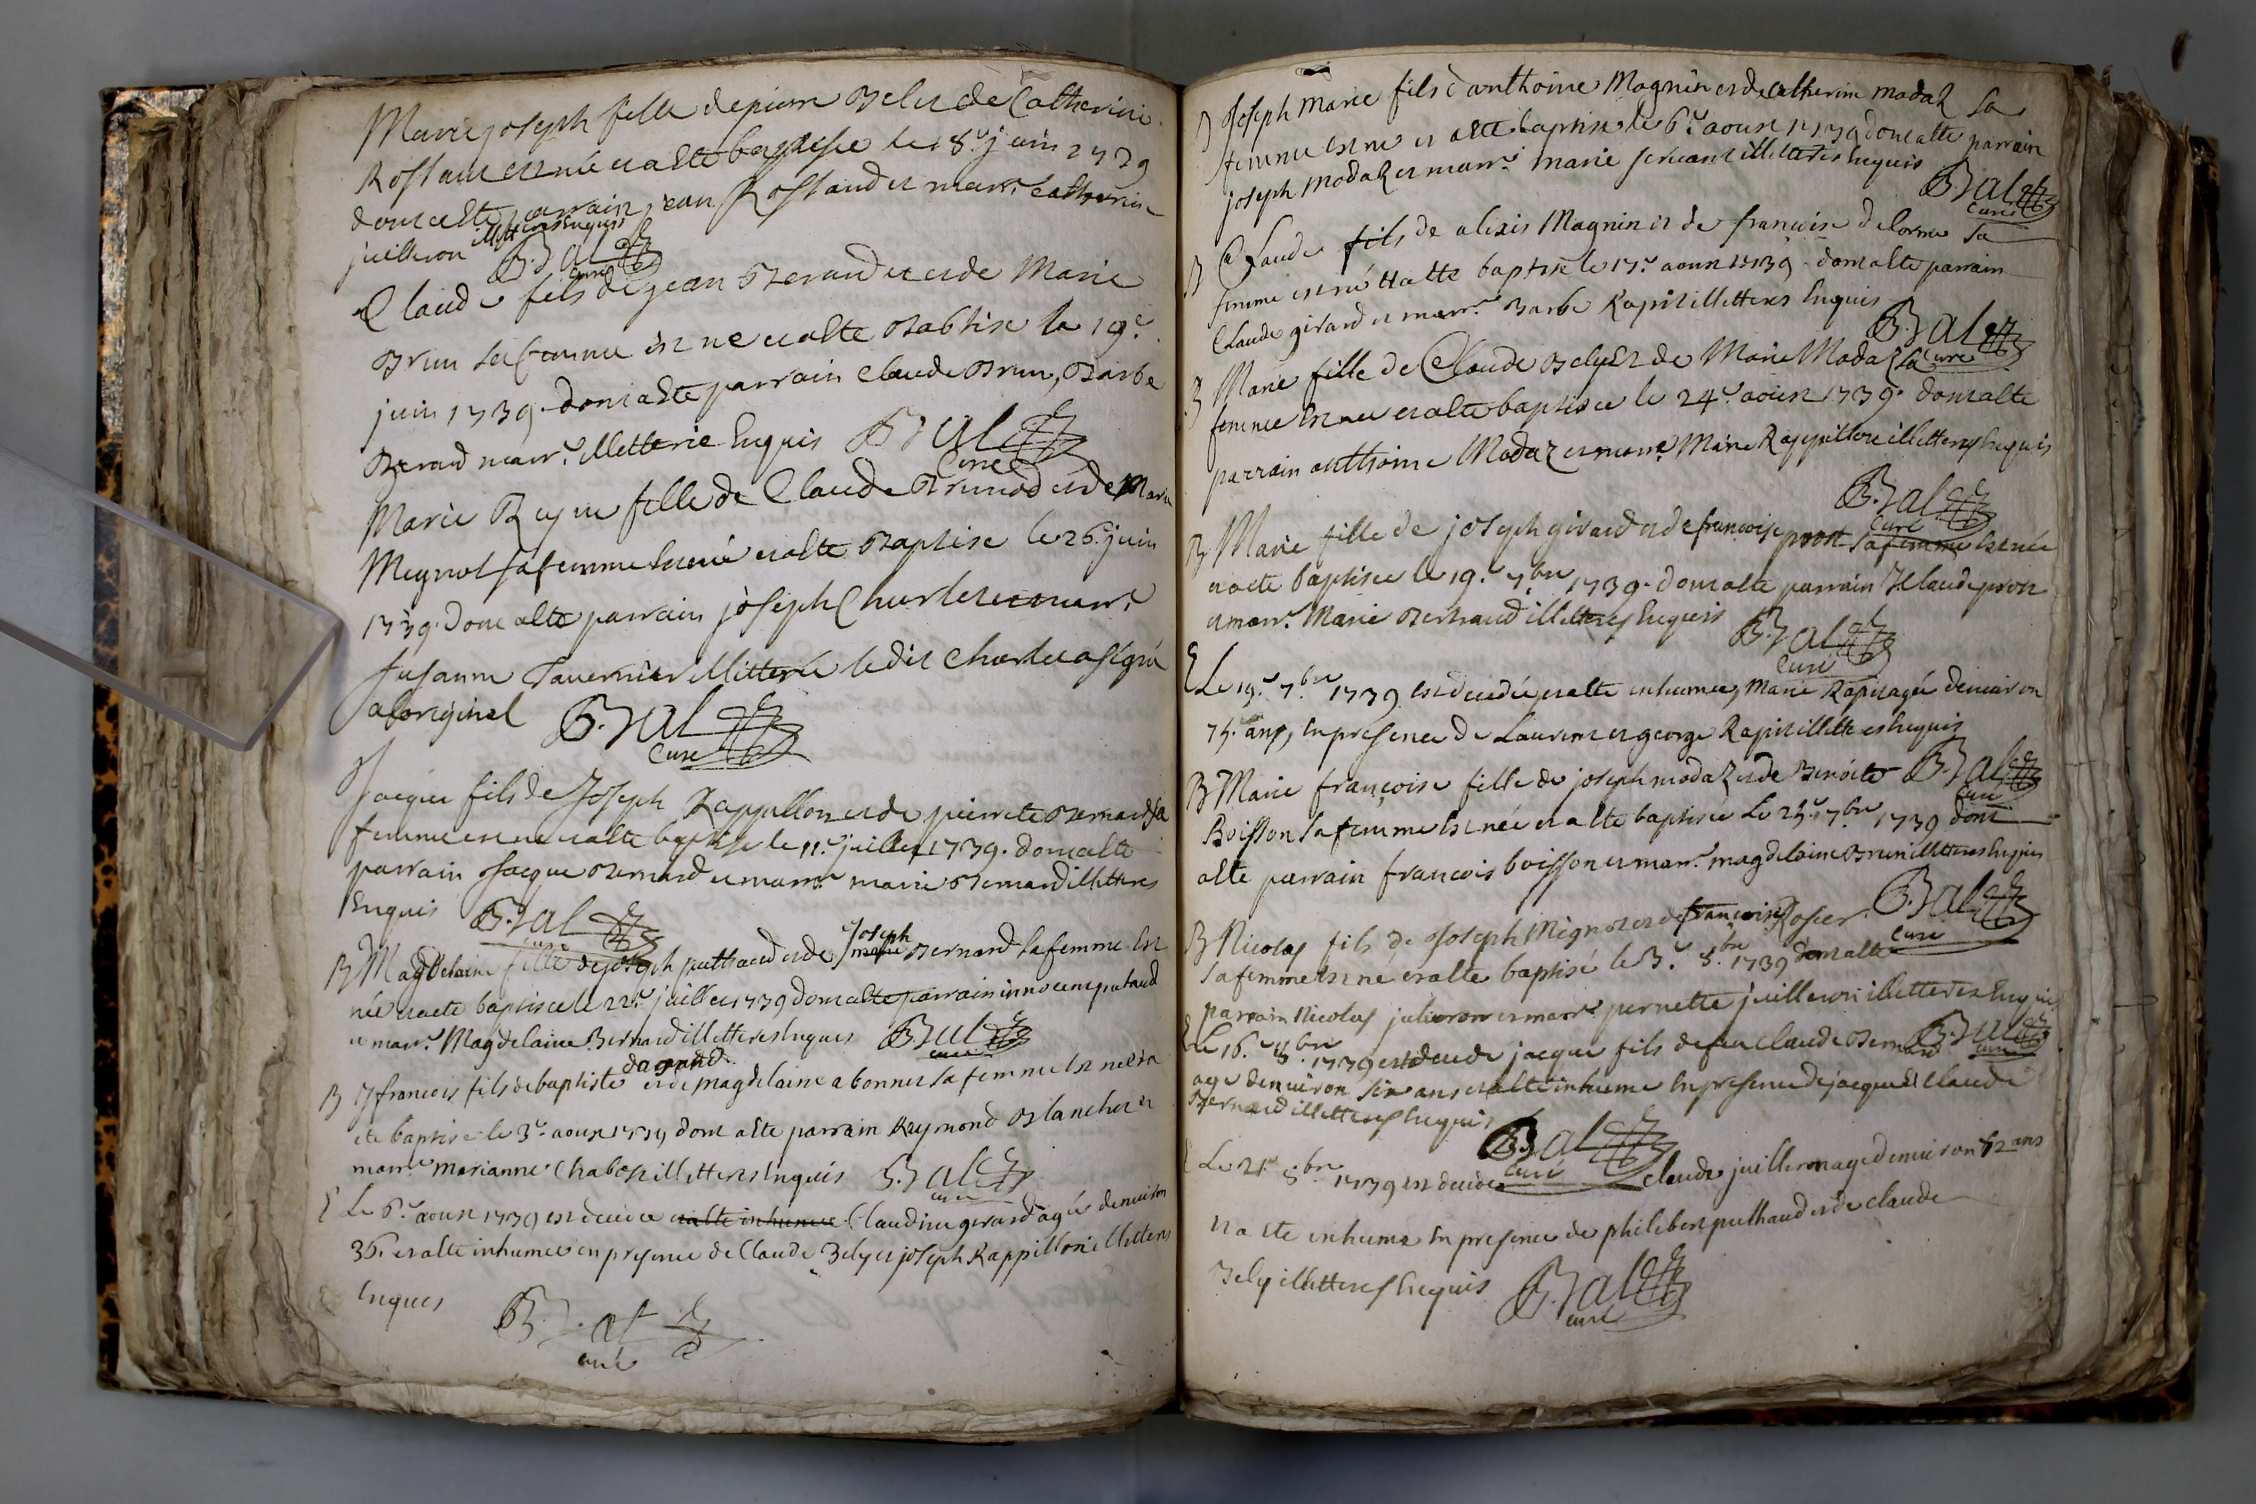 Marie joseph fille de pierre Belet de Catherine
Rostaud est née et a été baptisée le 18e juin 1739
dont a été parrain jean Rostaud et marr.e Catherine
juilleron illetterés Enquis
B. Bal
Curé
Claude fils de jean Beraud et et de Marie
Brun sa femme est né et a été Baptisé le 19.e
juin 1739. dont a été parrain Claude Brun, Barbe
Beraud marr.e illetterée Enquis B. Bal
Curé
Marie Reyne fille de Claude Brunod et de Marie
Megnot sa femme Est née et a été Baptisé le 26.e juin
1739. dont a été parrain joseph Charlet et marr.e
Susanne Tavernier illitterée ledit Charlet a signé
a l'original B. Bal
Curé
Jacque fils de Joseph Rappillon et de pierrete Bernard sa
femme est né et a été baptisé le 11.e juillet 1739. dont a été
parrain Jacque Bernard et marr.e marie Bernard illetteres
Enquis B. Bal
Curé
B Magdelaine fille de joseph puthaud et de Joseph marie Bernard sa femme Est
née et a ete baptisee le 22.e juillet 1739 dont a été parrain innocent puthaud
et marr.e Magdelaine Bernard illetteres Enquis B. Bal
curé
B francois fils de baptiste dagand et de magdelaine abonnet sa femme Est né et a
ete baptisé le 3.e aoust 1739 dont a été parrain Raymond Blanchet et
marr.e marianne Chabost illetteres Enquis B. Bal
curé
E Le 6.e aoust 1739 est decedée et a été inhumée Claudine gerard agée denviron
36. et a été inhumée en presence de Claude Bely et joseph Rappillon illetteres
Enquis
B. Bal
curé
B Joseph marie fils d'anthoine Magnin et de Catherine modaz sa
femme Est né et a été baptisé le 6.e aoust 1739 dont a été parrain
joseph modaz et marr.e marie servant illetteres Enquis
B. Bal
Curé
B Claude fils de alexis Magnin et de francoise delorme sa
femme est né et a été baptisé le 17.e aoust 1739. dont a été parrain
Claude girard et marr.e Barbe Rapit illetteres Enquis
B. Bal
Curé
B Marie fille de Claude Bely Et de Marie Modaz sa
femme Est née et a été baptisée le 24.e aoust 1739. dont a été
parrain anthoine Modaz et marr.e Marie Rappillon illetteres Enquis
B. Bal
Curé
B Marie fille de joseph girard et de francoise pront sa femme Est née
et a eté baptisée le 19.e 7.bre 1739. dont a été parrain Claude pront
et marr.e Marie Bertraud illetteres Enquis B. Bal
Curé
E Le 19.e 7.bre 1739 est decedée et a été inhumée, Marie Rapit agée denviron
75. ans, En presence de Laurent et george Rapit illetteres Enquis
B. Bal
Curé
B Marie françoise fille de joseph modaz et de Benoite
Boisson sa femme Est née et a été baptisée Le 25.e 7.bre 1739 dont
a été parrain francois boisson et marr.e magdelaine Brun illetteres Enquis
B. Bal
Curé
B Nicolas fils de Joseph Mignot et de françoise Rosier
sa femme Est né et a été baptisé le 3.e 8.bre 1739 dont a été
parrain Nicolas julieron et marr.e pernette juilleron illetteres Enquis
B. Bal
curé
E Le 16.e 8.bre 1739 est decede jacque fils de feu Claude Bernard
age denviron six ans et a été inhumé En presence de jacque Et Claude
Bernard illetteres Enquis B. Bal
Curé
E Le 21.e 8.bre 1739 est decede claude juilleron agé denviron 52 ans
et a été inhumé En presence de philibert puthaud et de claude
Bely illetteres Enquis B. Bal
curé